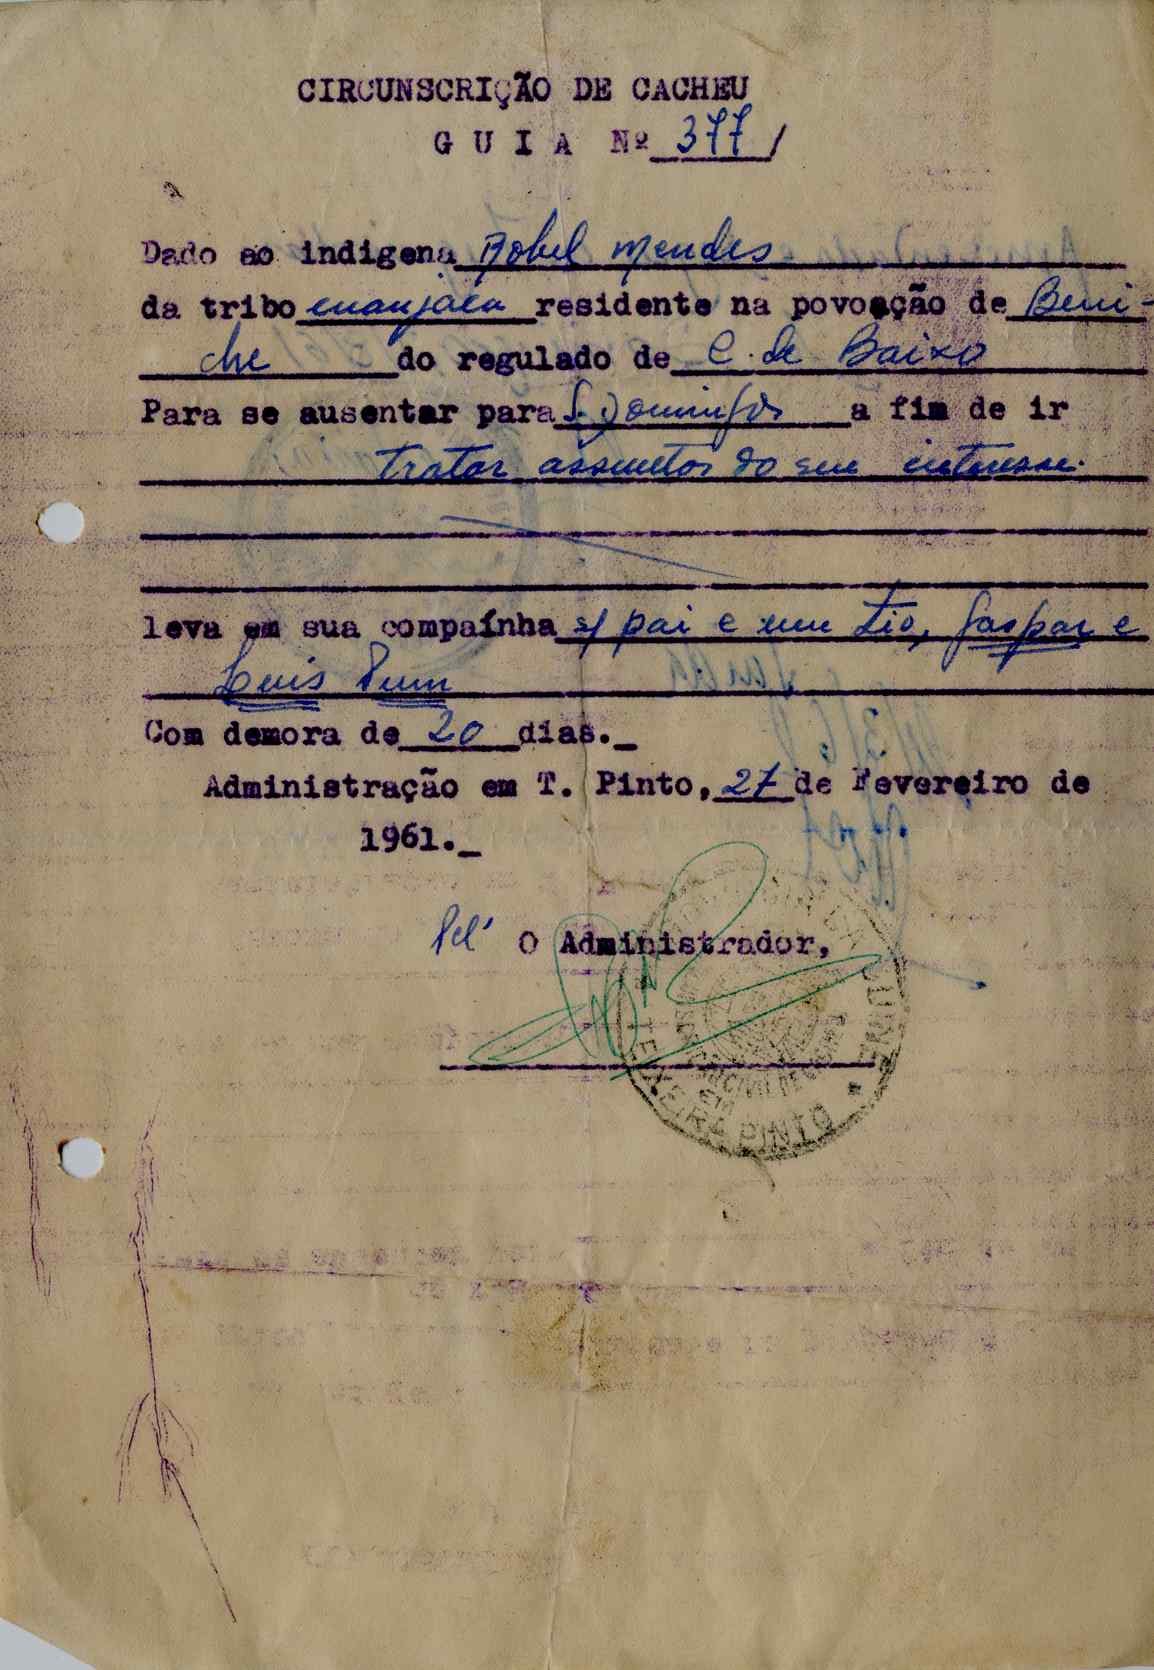 CIRCUNSCRIÇÃO DE CACHEU
GUIA Nº 377/
Dado ao indigena Bobel Mendes
da tribo manjaca residente na povoação de Beni-
che do regulado de C. de Baixo
Para se ausentar para S. Domingos a fim de ir
tratar assuntos do seu interesse.
leva em sua compaínha s/ pai e um tio, Gaspar e
Luis
Com demora de 20 dias._
Administração em T. Pinto, 27 de Fevereiro de
1961._
Pel' O Administrador,
TEIXEIRA PINTO